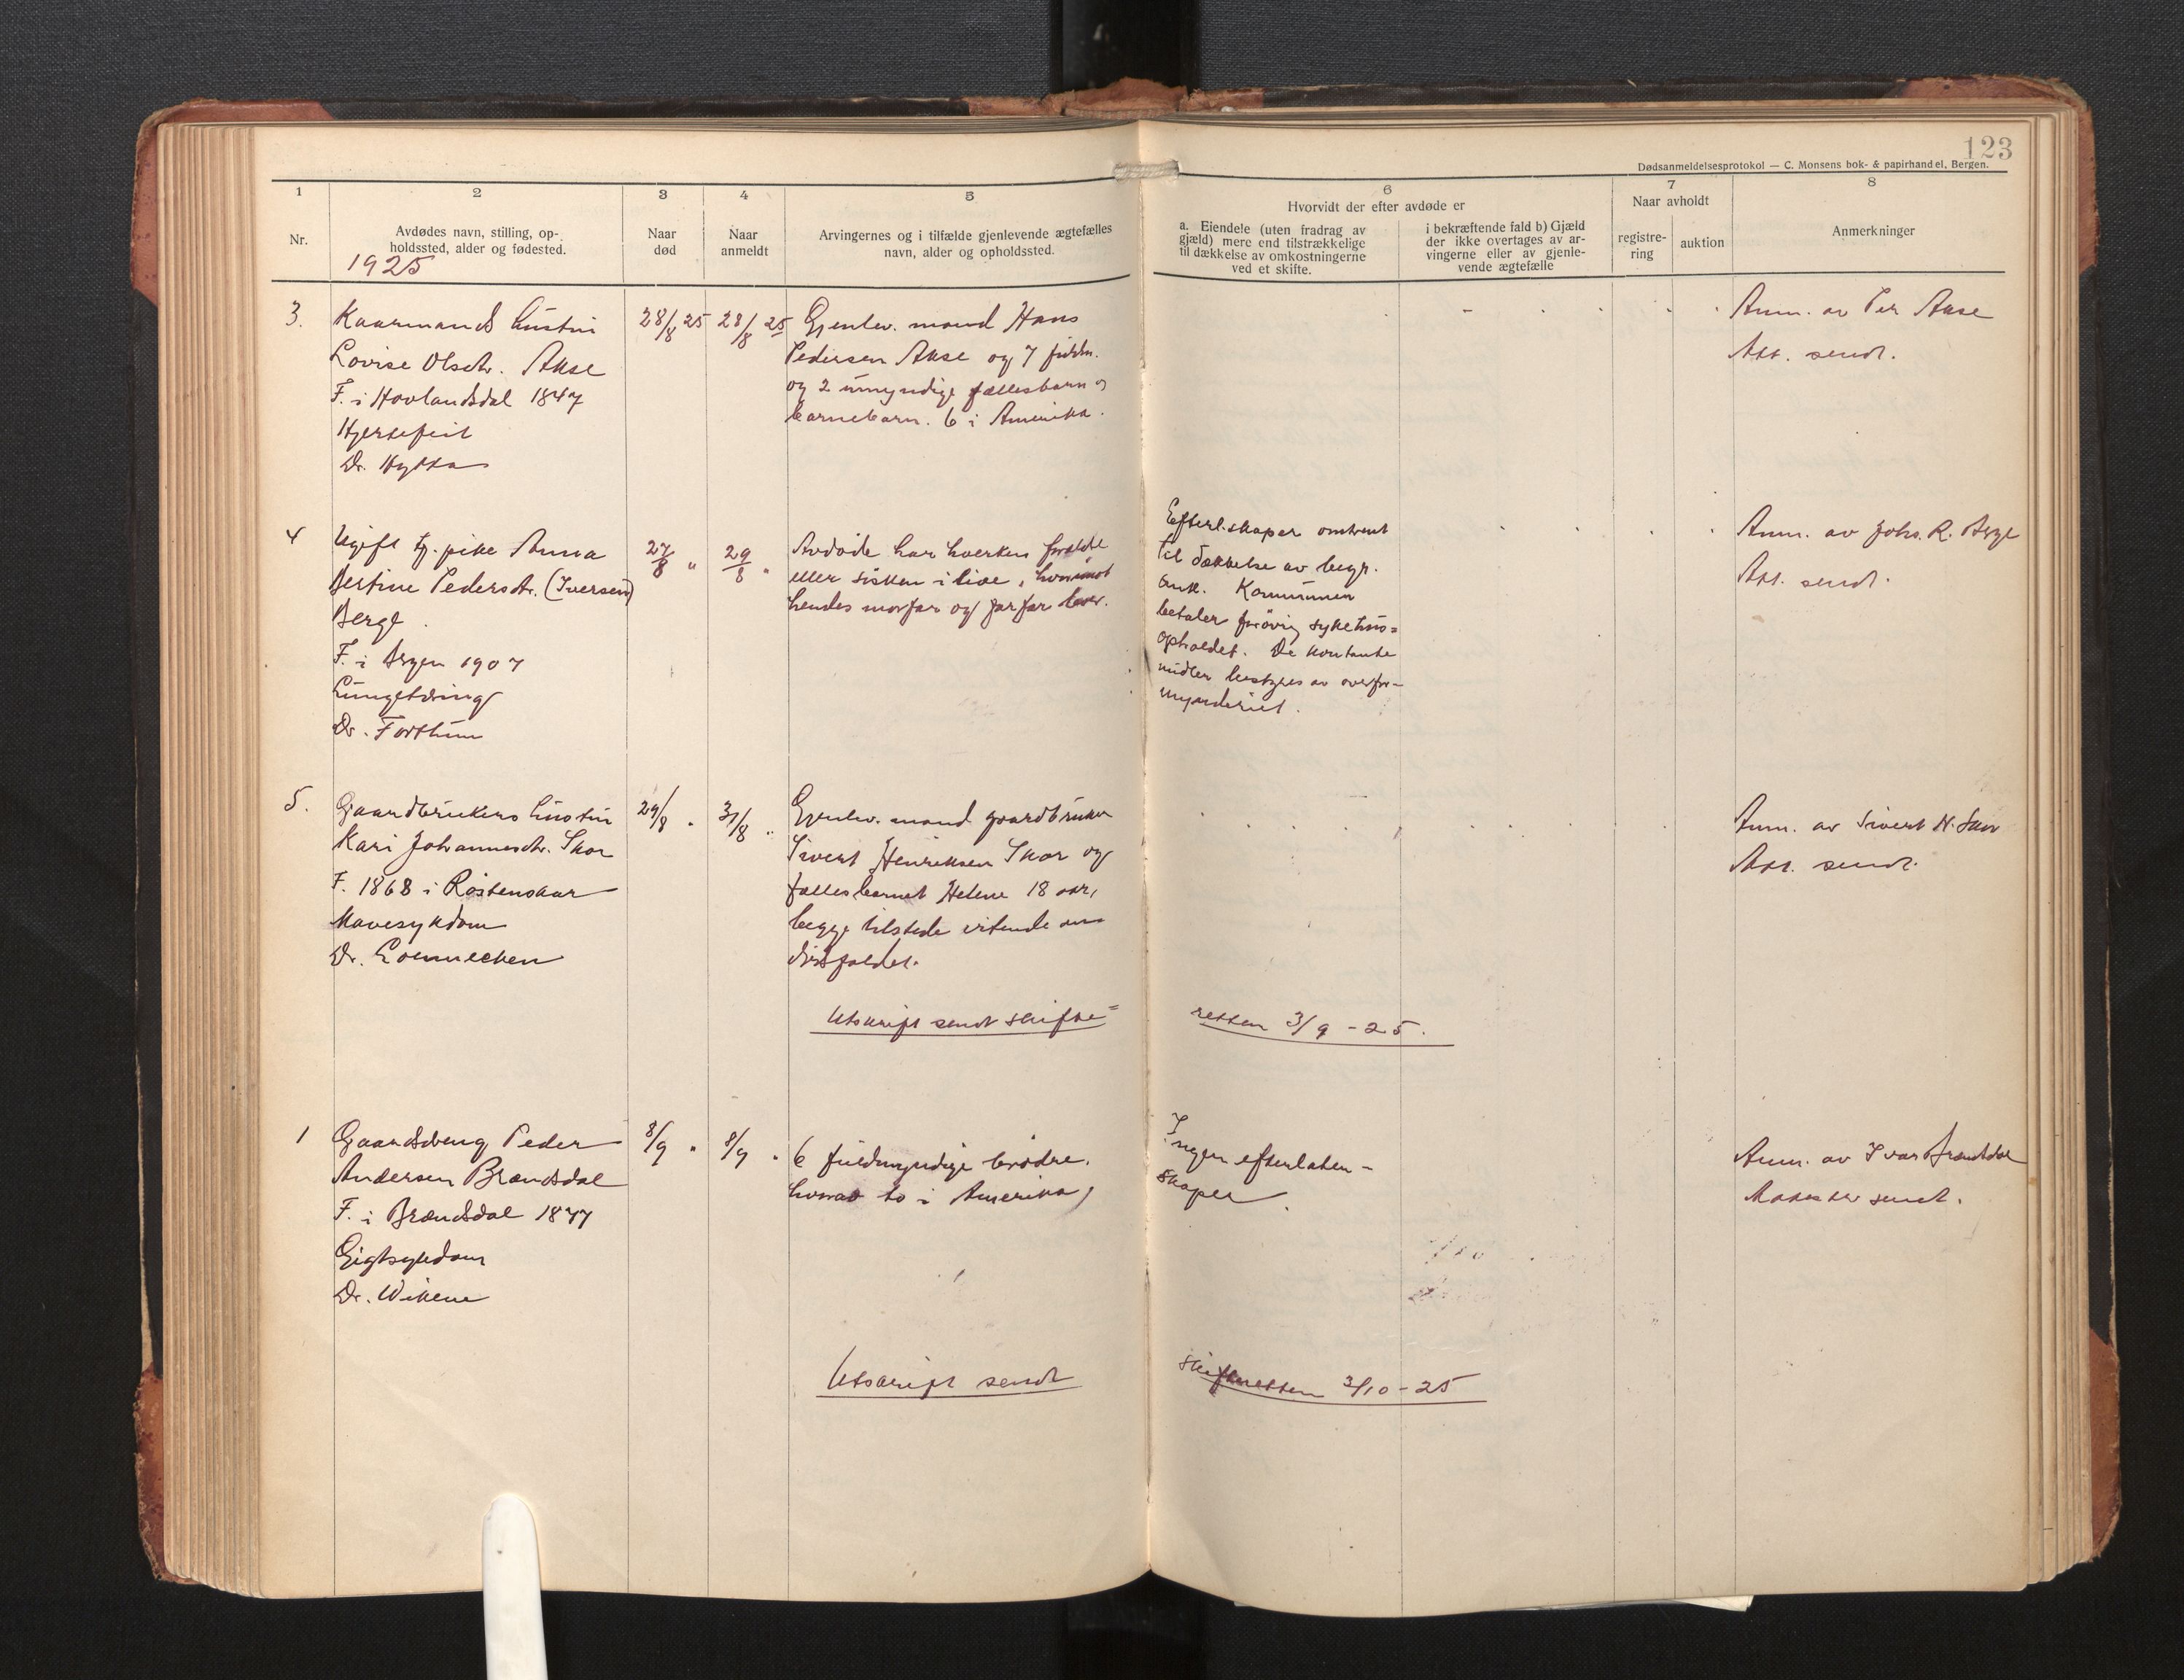 123
Dødsanmeldelsesprotokol — C. Monsens bok- & papirhandel, Bergen.
1
2
3
4
5
6
7
8
Nr.
Avdødes navn, stilling, op-
holdssted, alder og fødested.
1925
Naar
død
Naar
anmeldt
Arvingernes og i tilfælde gjenlevende ægtefælles
navn, alder og opholdssted.
Hvorvidt der efter avdøde er
a. Eiendele (uten fradrag av
gjæld) mere end tilstrækkelige
til dækkelse av omkostningerne
ved et skifte.
i bekræftende fald b) Gjæld
der ikke overtages av ar-
vingerne eller av gjenle-
vende ægtefælle
Naar avholdt
registre-
ring
auktion
Anmerkninger
3.
Kaarmands hustru
Lovise Olsdtr. Akse
F. i Hovlandsdal 1847
Hjertefeil
Dr.
28/8 25
28/8 25
Gjenlev. mand Hans
Pedersen Akse og 7 fuldm.
og 2 umyndige fællesbarn og
barnebarn. 6 i Amerika.
Anm. av Per Akse
Att. sendt.
4
Ugift tj. pike Anna
Bertine Pedersdtr. (Iversen)
Berge
F. i 1907
Lungetæring
Dr. Forthun
27/8 "
29/8 "
Avdøde har hverken forældre
eller sisken i live, hvorimot
hendes morfar og farfar lever.
Efterl.skaper omtrent
til dækkelse av begr.
omk. Kommunen
betaler forøvrig sykehus=
opholdet. De kontante
midler bestyres av overfor-
mynderiet.
Anm. av Johs. R. Berge
Att. sendt.
5.
Gaardbrukers hustru
Kari Johannesdtr. Skor
F. 1868 i Røstenskar
Mavesykdom
Dr. Loennecken
29/8 "
31/8 "
Gjenlev. mand gaardbruker
Sivert Henriksen Skor og
fællesbarnet Helene 18 aar,
begge tilstede vitende om
dødsfaldet.
Anm. av Sivert H. Skor
Att. sendt.
Utskrift sendt skifte=
retten 3/9 - 25.
1
Gaardsdreng Peder
Andersen Brændsdal
F. i Brændsdal 1877
Gigtsykdom
Dr. Wikene
8/9 "
8/9 "
6 fuldmyndige brødre.
hvorav to i Amerika,
Ingen efterlaten-
skaper.
Anm. av Ivar Brændsdal
sendt.
Utskrift sendt
skifteretten 3/10 - 25